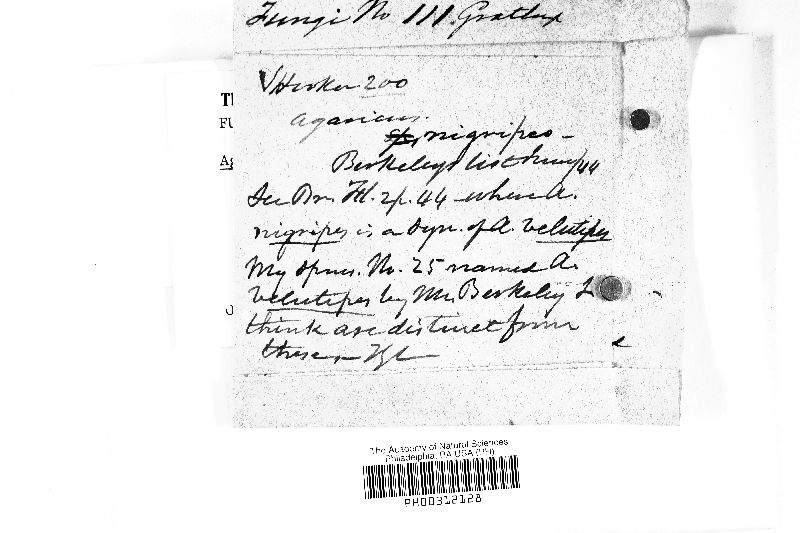 Fungi No 111.
200
Agaricus.
nigripes –
Berkeley's list
See Br. Fl. 2p. 44 where A.
nigripes is a Syn. of A. velutipes
My spms. No. 25 named A.
velutipes by Mr. Berkeley I
think are distinct from
these –
FU
Ag
The Academy of Natural Sciences
Philadelphia, PA USA (PH)
PH00312128